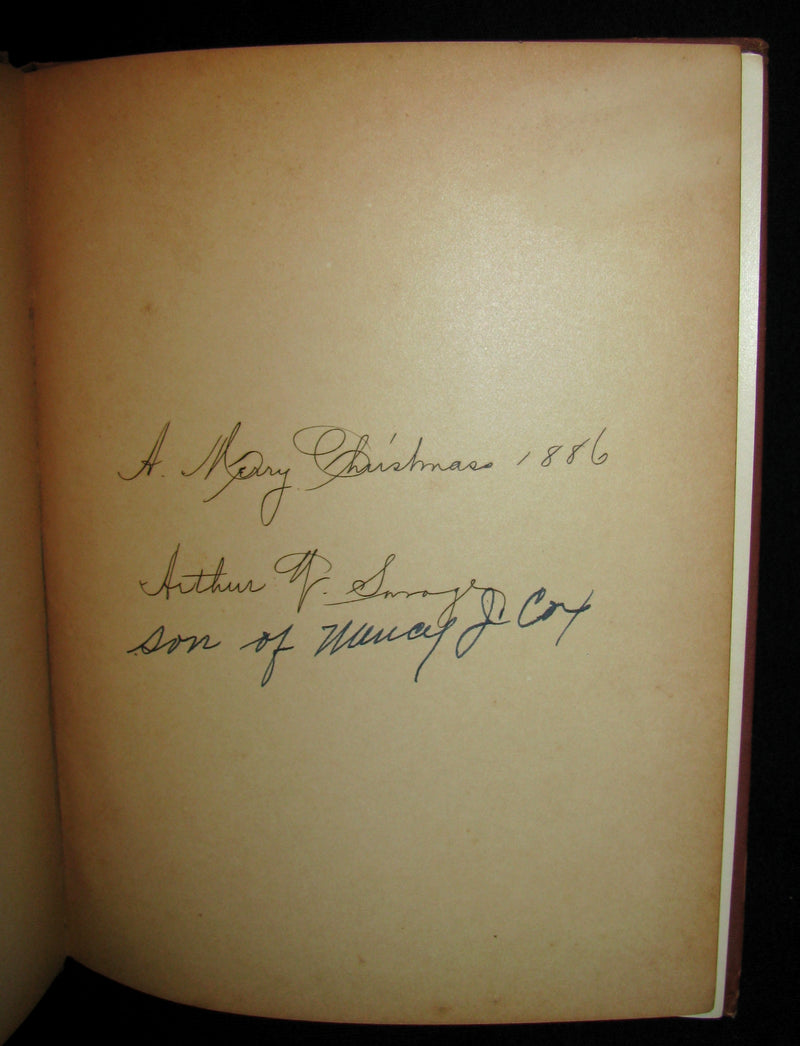 A. Merry Christmas 1886
Arthur W. Savage
son of Nancy J. Cox